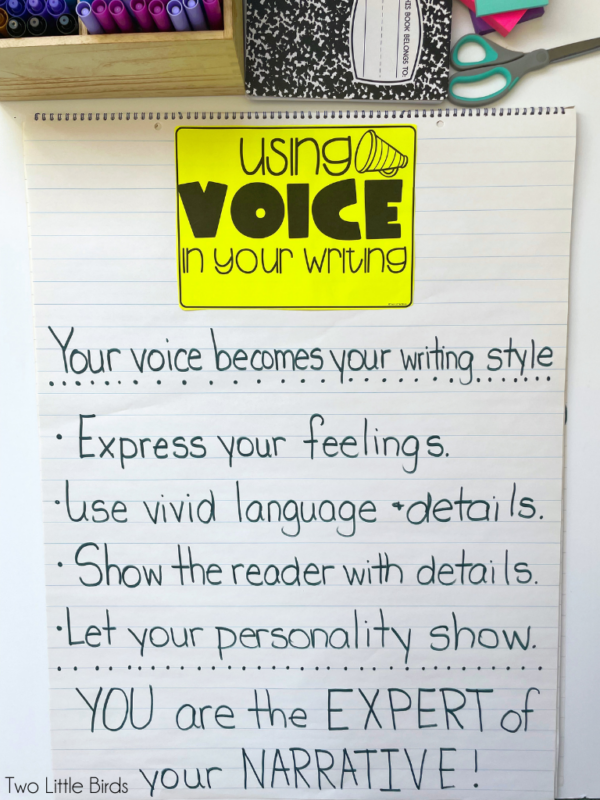 KIS BOOK BELONGS TO:
using
VOICE
in your writing
Your voice becomes your writing style
• Express your feelings.
• Use vivid language + details.
• Show the reader with details.
• Let your personality show.
YOU are the EXPERT of
your NARRATIVE!
Two Little Birds